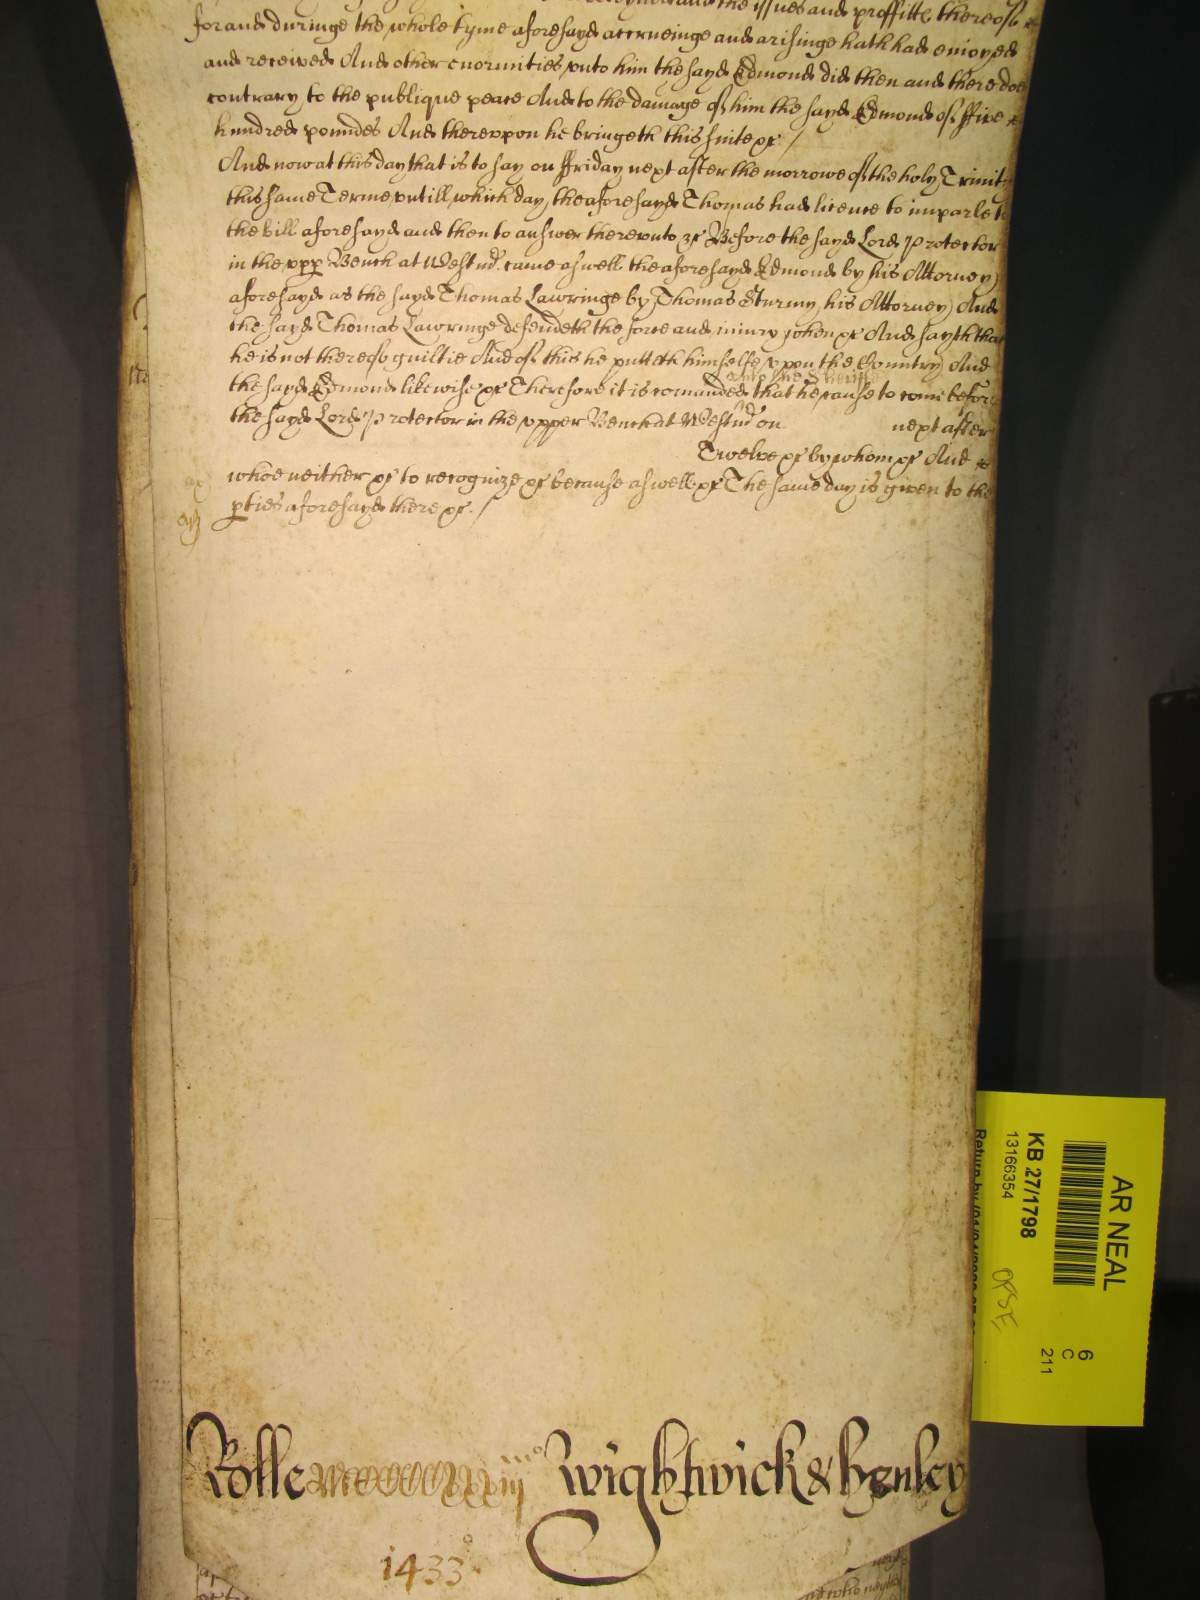 the issues and proffitts thereof
for and duringe the whole tyme aforesayd accrueinge and arisinge hath had enioyed
and received And other enormities unto him the sayd Edmond did then and there doe
contrary to the publique peace And to the damage of him the sayd Edmond of ffive
hundred poundes And thereuppon he bringeth this suite &c /
And now at this day that is to say on ffriday next after the morrowe of the holy Trinity
this same Terme untill which day the aforesayd Thomas had licence to imparle to
the bill aforesayd and then to answer thereunto &c Before the sayd Lord Protector
in the upp Bench at Westmr came aswell the aforesayd Edmond by his Attorney
aforesayd as the sayd Thomas Lawringe by Thomas Sturmy his Attorney And
the sayd Thomas Lawringe defendeth the force and iniury when &c And sayth that
he is not thereof guiltie And of this he putteth himselfe uppon the Country And
the sayd Edmond likewise &c Therefore it is comanded unto the Sheriffe that he cause to come before
the sayd Lord Protector in the upper Bench at Westmr on next after
Twelve &c by whom &c And
whoe neither &c to recognize &c because aswell &c The same day is given to the
pties aforesayd there &c /
Rolle Wightwick & Henley
1433
AR NEAL
KB 27/1798
13166354
6
C
211